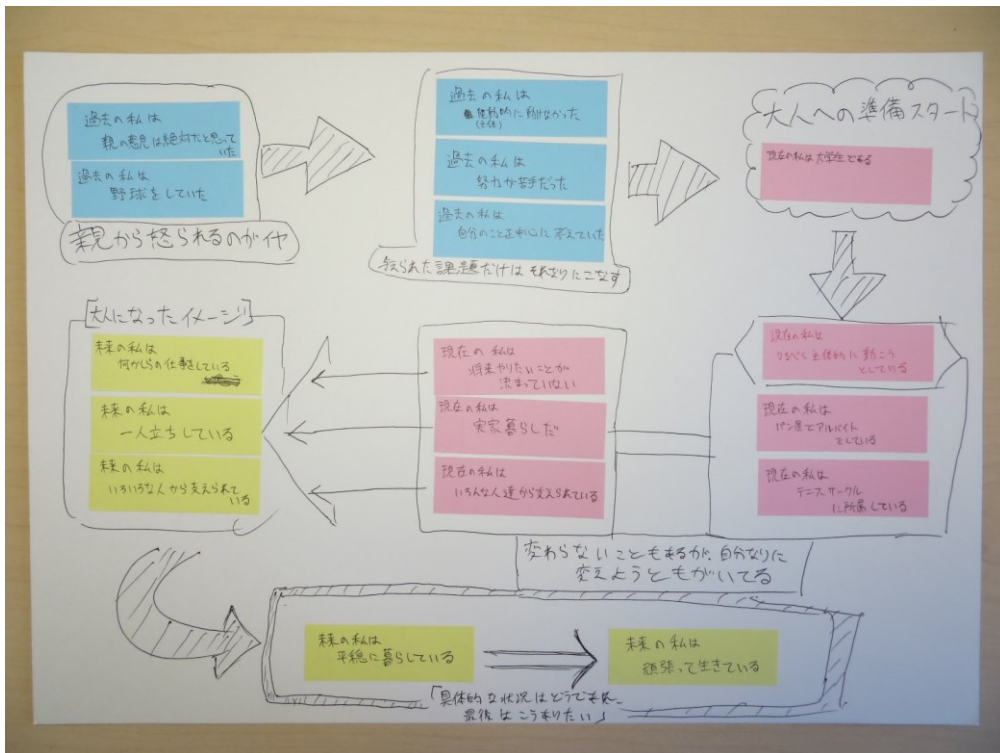 過去の私は
親の意見は絶対だと思って
いた
過去の私は
野球をしていた
親から怒られるのがイヤ
過去の私は
能動的に動けなかった
(主体)
過去の私は
努力が苦手だった
過去の私は
自分のことを中心に考えていた
与えられた課題だけは それなりにこなす
大人への準備スタート
現在の私は大学生である
現在の私は
なるべく主体的に動こう
としている
現在の私は
パン屋でアルバイト
をしている
現在の私は
テニスサークル
に所属している
現在の私は
将来やりたいことが
決まっていない
現在の私は
実家暮らしだ
現在の私は
いろんな人達から支えられている
変わらないこともあるが、自分なりに
変えようともがいてる
[大人になったイメージ]
未来の私は
何かしらの仕事をしている
未来の私は
一人立ちしている
未来の私は
いろいろな人から支えられて
いる
未来の私は
平穏に暮らしている
未来の私は
頑張って生きている
「具体的な状況はどうであれ
最後はこうありたい」